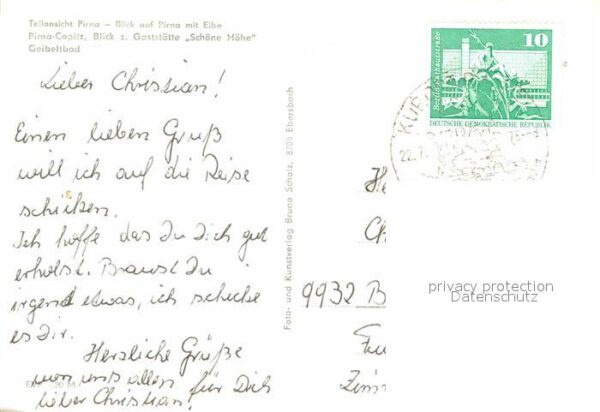 Teilansicht Pirna – Blick auf Pirna mit Elbe
Pirna-Copitz, Blick z. Gaststätte „Schöne Höhe"
Geibeltbad
Lieber Christian!
Einen lieben Gruß
will ich auf die Reise
schicken.
Ich hoffe das Du Dich gut
erholst. Braust Du
irgend etwas, ich schicke
es Dir.
Herzliche Grüße
von uns allen für Dich
lieber Christian!
Foto- und Kunstverlag Bruno Scholz, 8705 Ebersbach
10
Berlin, Rathausstraße
DEUTSCHE DEMOKRATISCHE REPUBLIK
KUR
22.7.
He
Ch
9932 B
Zim
privacy protection
Datenschutz